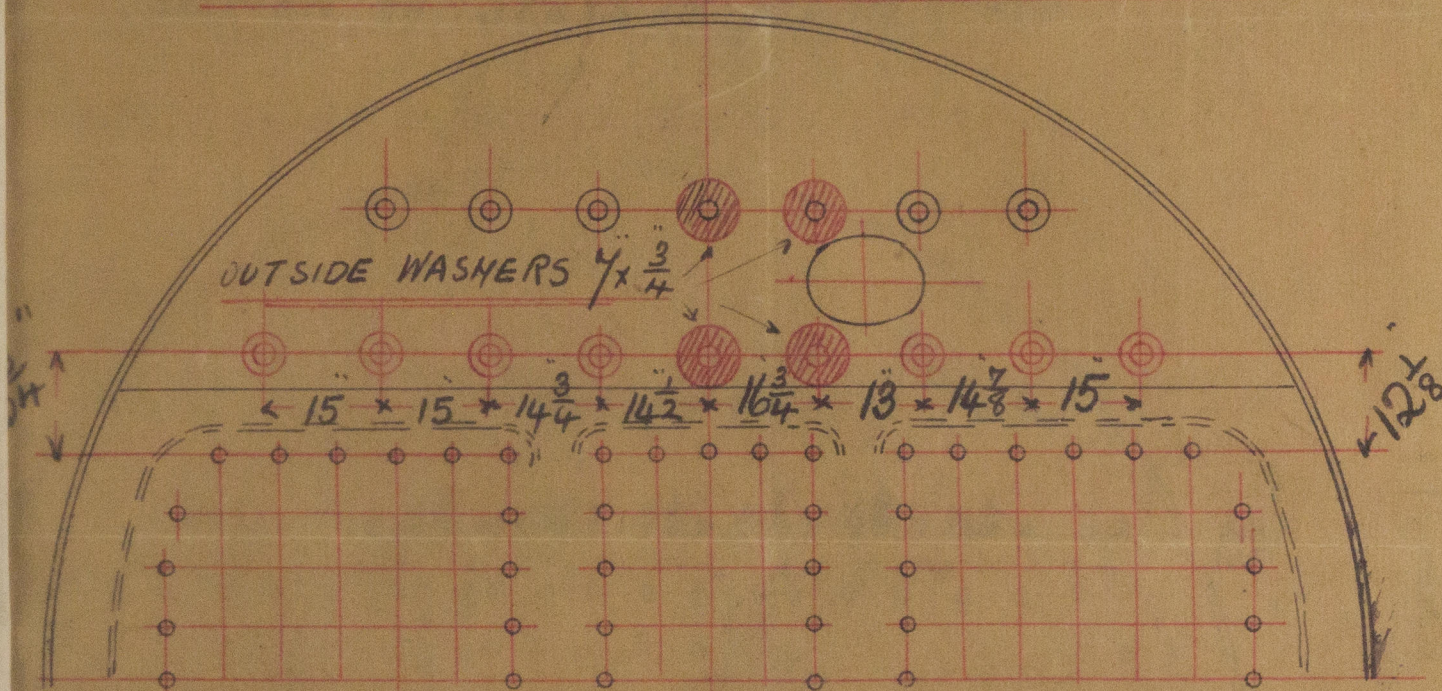 OUTSIDE WASHERS 7" x 3/4"
15" x 15" x 14 3/4" x 14 1/2" x 16 3/4" x 13" x 14 7/8" x 15"
12 1/8"